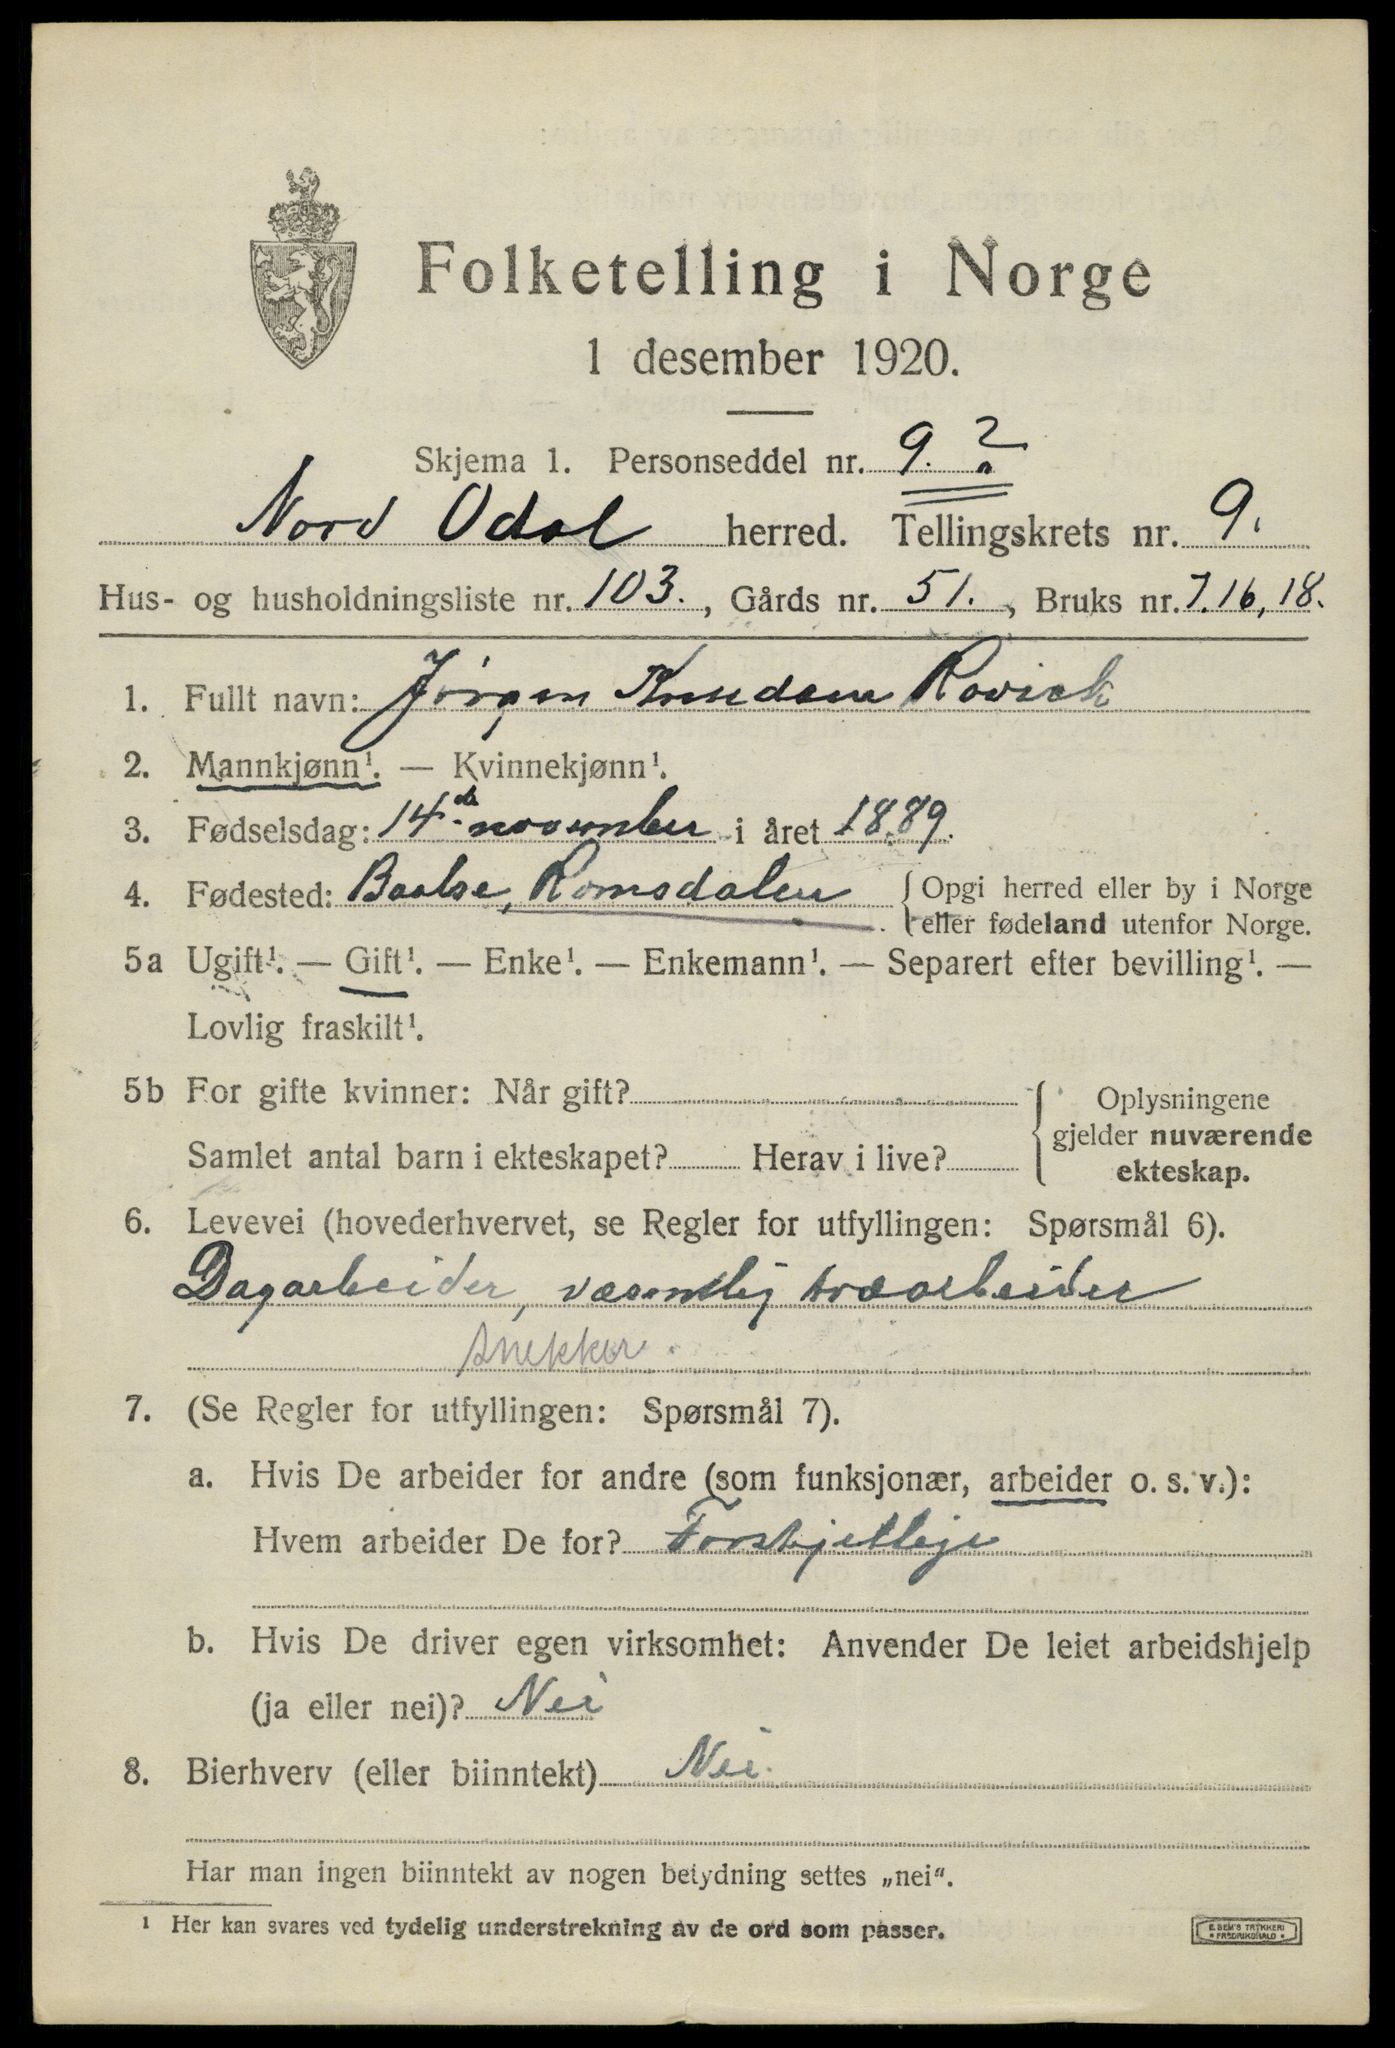 Folketelling i Norge
1 desember 1920.
Skjema 1. Personseddel nr. 9. ?
Nord Odal herred. Tellingskrets nr. 9.
Hus- og husholdningsliste nr. 103., Gårds nr. 51., Bruks nr. 7.16,18.
1. Fullt navn: Jörgen Knudsen Rovick
2. Mannkjønn¹. — Kvinnekjønn¹.
3. Fødselsdag: 14de november i året 1889.
4. Fødested: Romsdalen { Opgi herred eller by i Norge
eller fødeland utenfor Norge.
5a Ugift¹. — Gift¹. — Enke¹. — Enkemann¹. — Separert efter bevilling¹. —
Lovlig fraskilt¹.
5b For gifte kvinner: Når gift?
Samlet antal barn i ekteskapet? Herav i live?
{ Oplysningene
gjelder nuværende
ekteskap.
6. Levevei (hovederhvervet, se Regler for utfyllingen: Spørsmål 6).
Dagarbeider, væsentlig træarbeider
snekker.
7. (Se Regler for utfyllingen: Spørsmål 7).
a. Hvis De arbeider for andre (som funksjonær, arbeider o. s. v.):
Hvem arbeider De for? Forskjellige
b. Hvis De driver egen virksomhet: Anvender De leiet arbeidshjelp
(ja eller nei)? Nei
8. Bierhverv (eller biinntekt) Nei.
Har man ingen biinntekt av nogen betydning settes „nei“.
¹ Her kan svares ved tydelig understrekning av de ord som passer.
E. SEM'S TRYKKERI
* FREDRIKSHALD *